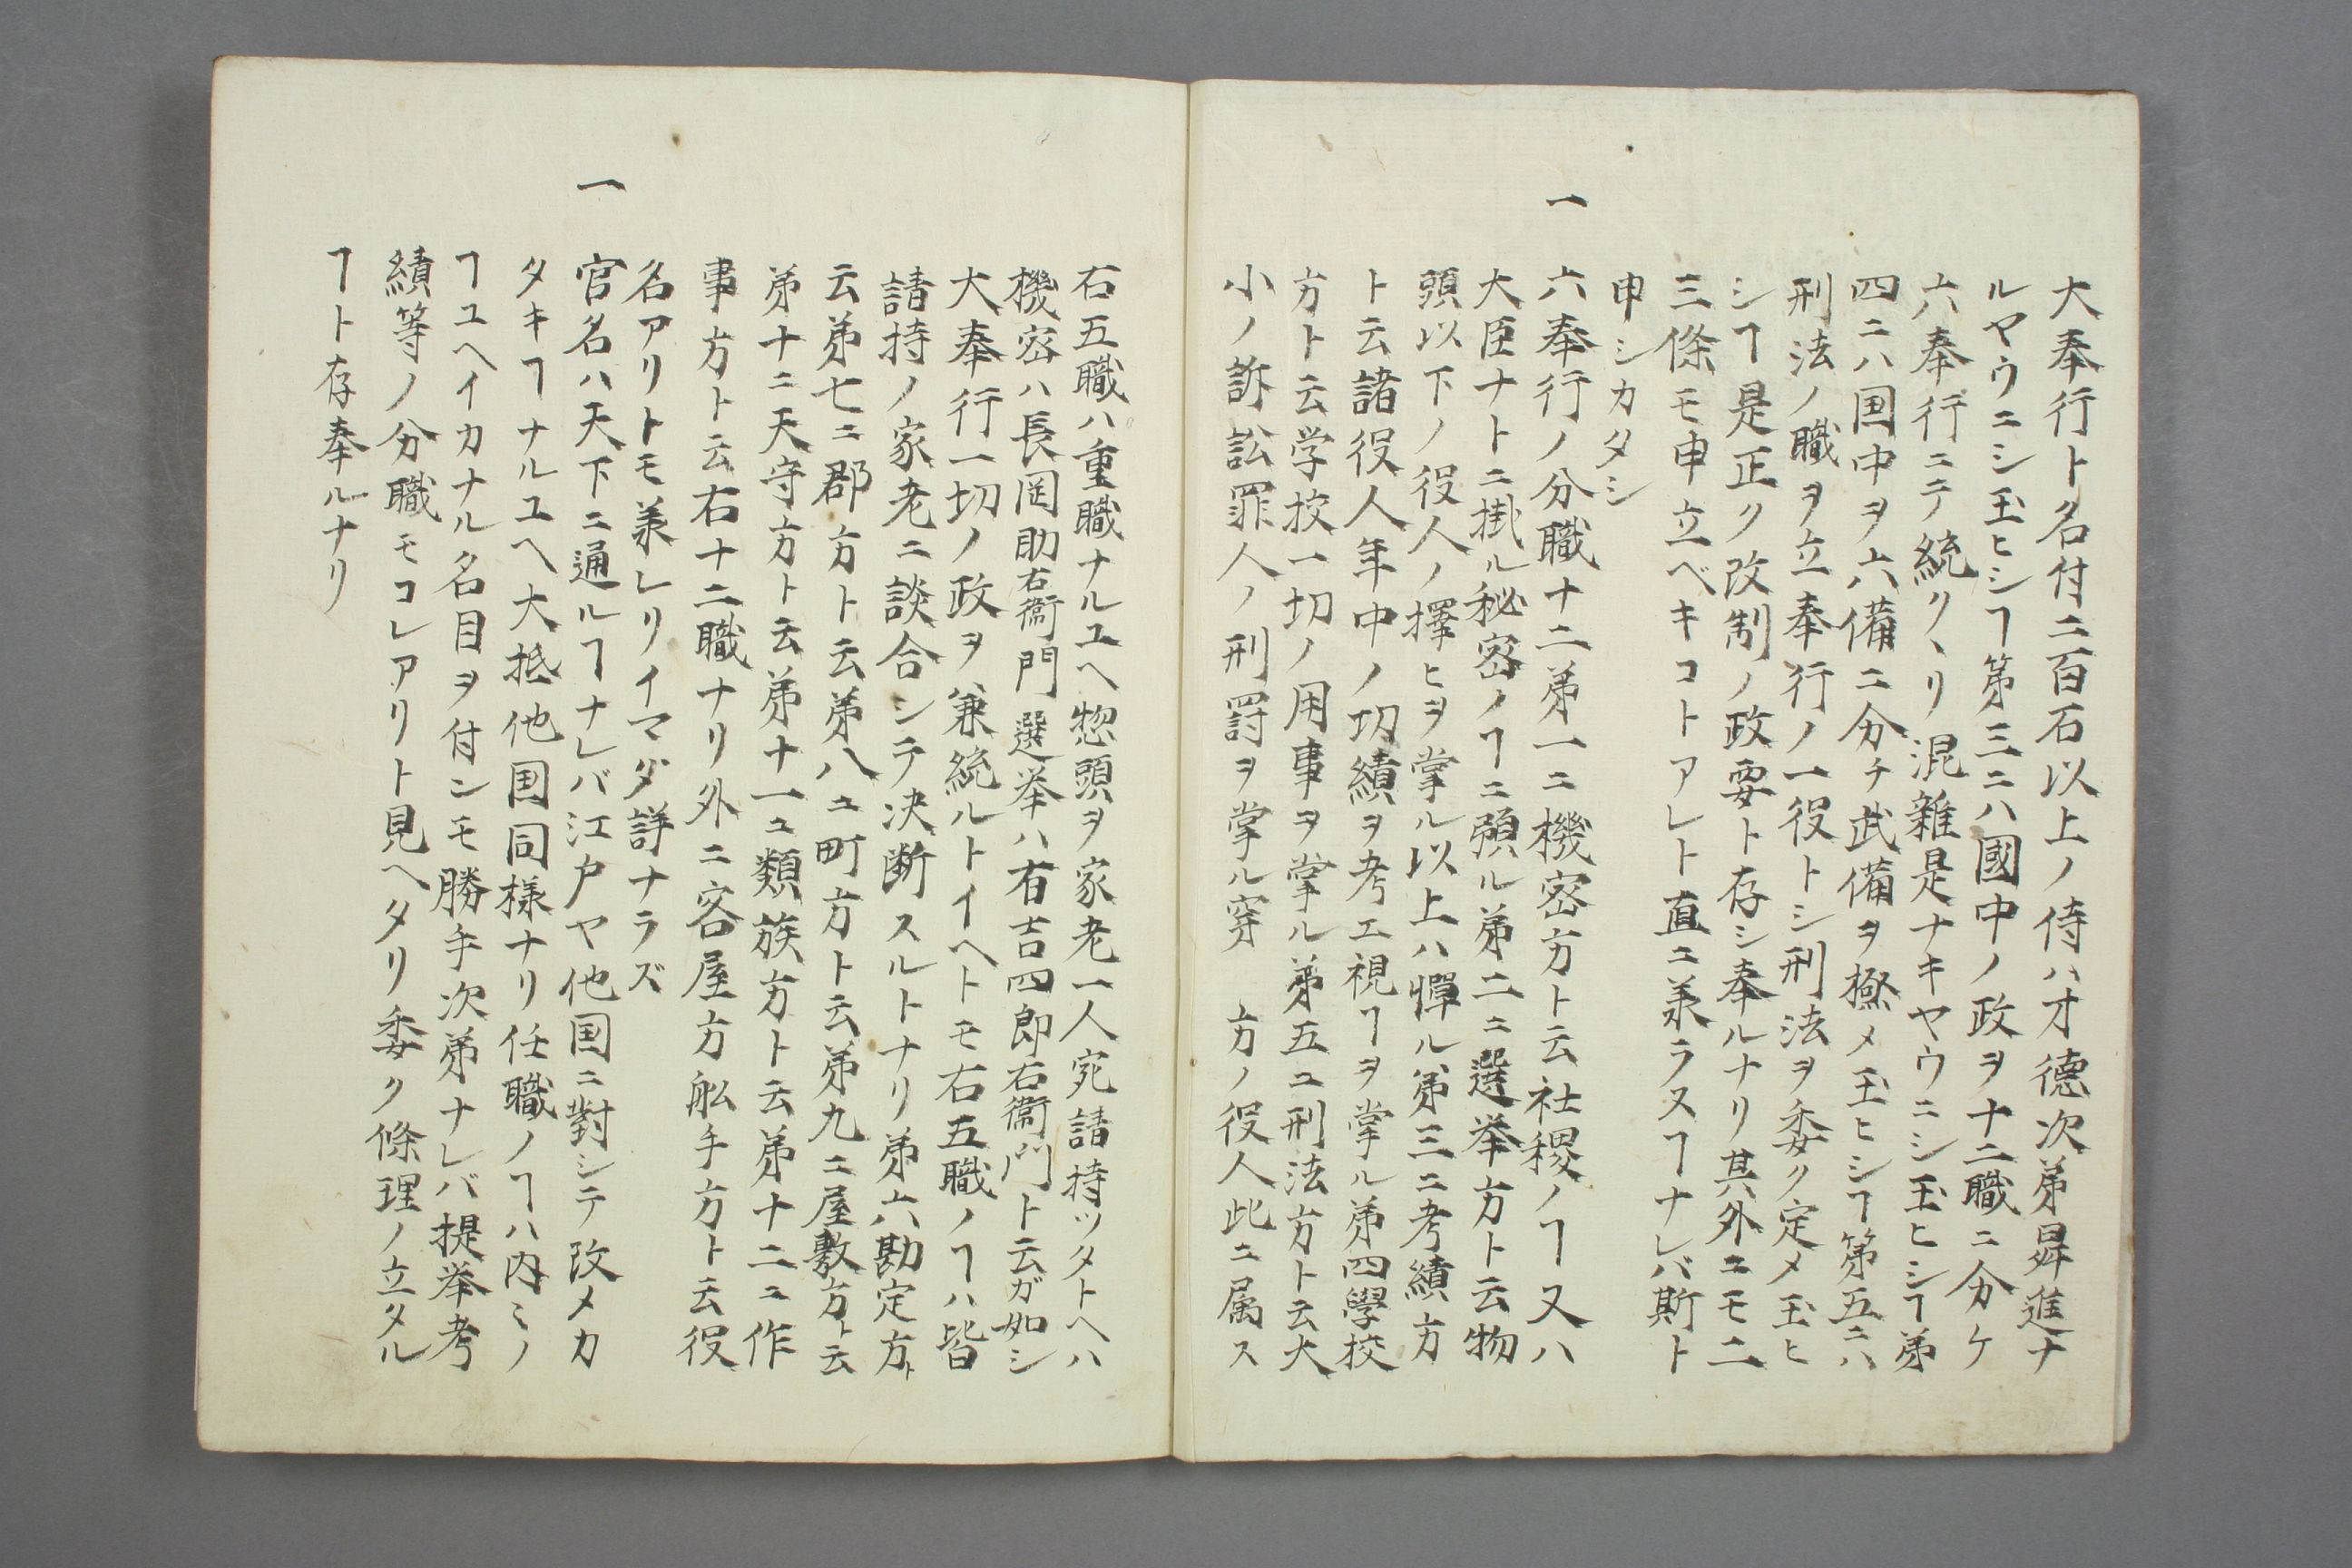 大奉行ト名付二百石以上ノ侍ハ才德次第昇進ナ
ルヤウニシ玉ヒシヿ第三ニハ國中ノ政ヲ十二職ニ分ケ
六奉行ニテ統クヽリ混雜是ナキヤウニシ玉ヒシヿ第
四ニハ国中ヲ六備ニ分チ武備ヲ極メ玉ヒシヿ第五ニハ
刑法ノ職ヲ立奉行ノ一役トシ刑法ヲ委ク定メ玉ヒ
シヿ是正ク改制ノ政要ト存シ奉ルナリ其外ニモ二
三條モ申立ベキコトアレト直ニ承ラスヿナレバ斯ト
申シカタシ
一 六奉行ノ分職十二第一ニ機密方ト云社稷ノヿ又ハ
大臣ナトニ掛ル秘密ノヿニ預ル第二ニ選挙方ト云物
頭以下ノ役人ノ擇ヒヲ掌ル以上ハ憚ル第三ニ考績方
ト云諸役人年中ノ功績ヲ考エ視ヿヲ掌ル第四學校
方ト云学校一切ノ用事ヲ掌ル第五ニ刑法方ト云大
小ノ訴訟罪人ノ刑罰ヲ掌ル穿 方ノ役人此ニ属ス
右五職ハ重職ナルユヘ惣頭ヲ家老一人宛請持ツタトヘハ
機密ハ長岡助右衞門選挙ハ有吉四郎右衞門ト云ガ如シ
大奉行一切ノ政ヲ兼統ルトイヘトモ右五職ノヿハ皆
請持ノ家老ニ談合シテ決断スルトナリ第六勘定方ト
云第七ニ郡方ト云第八ニ町方ト云第九ニ屋敷方ト云
第十ニ天守方ト云第十一ニ類族方ト云第十二ニ作
事方ト云右十二職ナリ外ニ客屋方舩手方ト云役
名アリトモ承レリイマダ詳ナラズ
一 官名ハ天下ニ通ルヿナレバ江戸ヤ他国ニ對シテ改メカ
タキヿナルユヘ大抵他国同様ナリ任職ノヿハ内ミノ
ヿユヘイカナル名目ヲ付シモ勝手次第ナレバ提挙考
績等ノ分職モコレアリト見ヘタリ委ク條理ノ立タル
ヿト存奉ルナリ